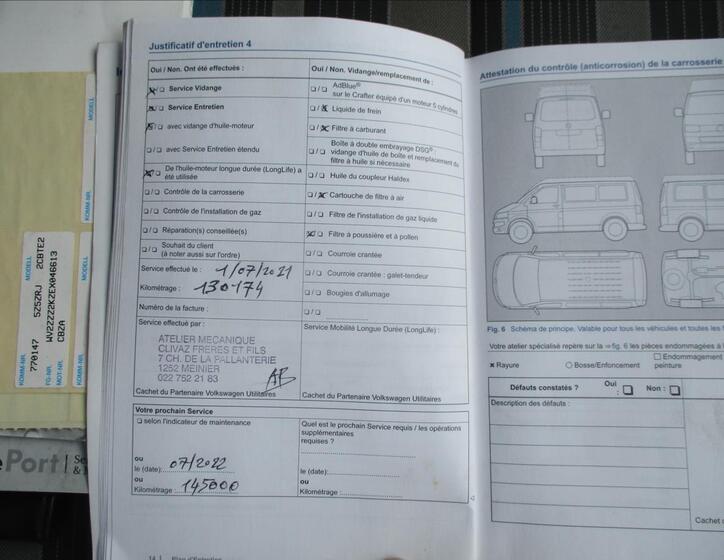 MODELL
KOMM.-NR.
MODELL
KOMM.-NR.
770147 5Z5ZRJ 2CBTE2
FG-NR. WV2ZZZ2KZEX046613
MOT-NR. CBZA
ePort
Justificatif d'entretien 4
Oui / Non. Ont été effectués :
☒/☐ Service Vidange
☒/☐ Service Entretien
☒/☐ avec vidange d'huile-moteur
☐/☐ avec Service Entretien étendu
☒/☐ De l'huile-moteur longue durée (LongLife) a
été utilisée
☐/☐ Contrôle de la carrosserie
☐/☐ Contrôle de l'installation de gaz
☐/☐ Réparation(s) conseillée(s)
☐/☐ Souhait du client
(à noter aussi sur l'ordre)
Service effectué le : 1/07/2021
Kilométrage : 130174
Numéro de la facture :
Service effectué par :
ATELIER MECANIQUE
CLIVAZ FRERES ET FILS
7 CH. DE LA PALLANTERIE
1252 MEINIER
022 752 21 83
Cachet du Partenaire Volkswagen Utilitaires
Oui / Non. Vidange/remplacement de :
☐/☐ AdBlue®
sur le Crafter équipé d'un moteur 6 cylindres
☐/☒ Liquide de frein
☐/☒ Filtre à carburant
☐/☐ Boîte à double embrayage DSG® :
vidange d'huile de boîte et remplacement du
filtre à huile si nécessaire
☐/☐ Huile du coupleur Haldex
☐/☒ Cartouche de filtre à air
☐/☐ Filtre de l'installation de gaz liquide
☒/☐ Filtre à poussière et à pollen
☐/☐ Courroie crantée
☐/☐ Courroie crantée : galet-tendeur
☐/☐ Bougies d'allumage
☐/☐
Service Mobilité Longue Durée (LongLife) :
Cachet du Partenaire Volkswagen Utilitaires
Votre prochain Service
☐ selon l'indicateur de maintenance
ou
le (date): 07/2022
ou
Kilométrage : 145000
Quel est le prochain Service requis / les opérations
supplémentaires
requises ?
le (date):
ou
Kilométrage :
14 | Plan d'Entretien
Attestation du contrôle (anticorrosion) de la carrosserie
Fig. 6 Schéma de principe. Valable pour tous les véhicules et toutes les
Votre atelier spécialisé repère sur la ⇒ fig. 6 les pièces endommagées
x Rayure
○ Bosse/Enfoncement
☐ Endommagement
peinture
Défauts constatés ?
Oui : ☐
Non : ☐
Description des défauts :
Cachet